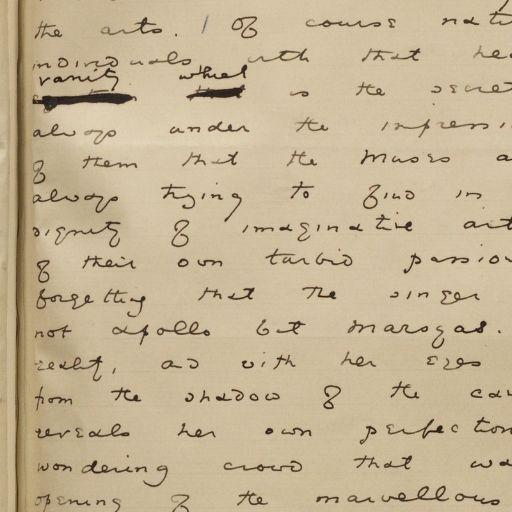 the arts. / Of course
individuals with that
vanity which
is the secret
always under the
of them that the Muses
always trying to find in
dignity of imaginative
of their own turbid
forgetting that the singer
not Apollo but Marsyas.
reality, and with her eyes
from the shadow of the
reveals her own perfection
wondering crowd that
opening of the marvellous